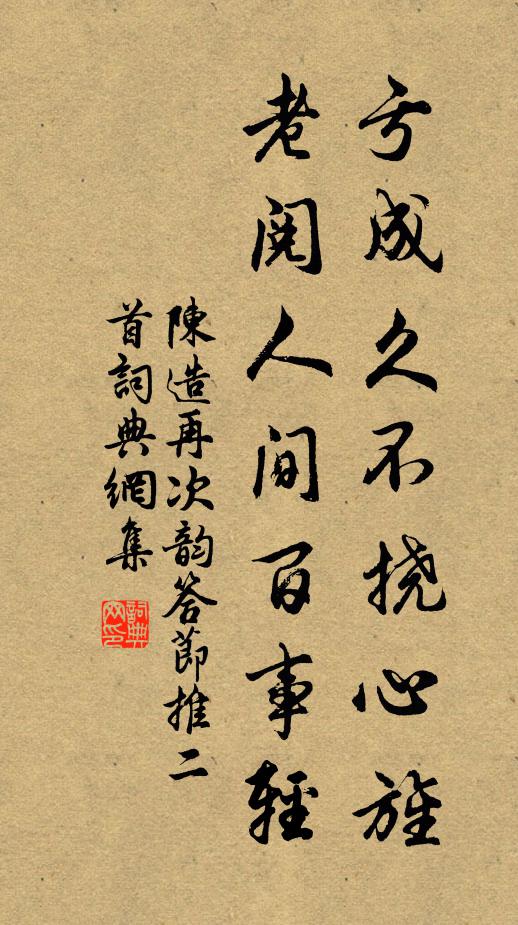 亏成久不挠心旌
老阅人间百事轻
陳造再次韵答節推二
首詞典網集
詞典网印